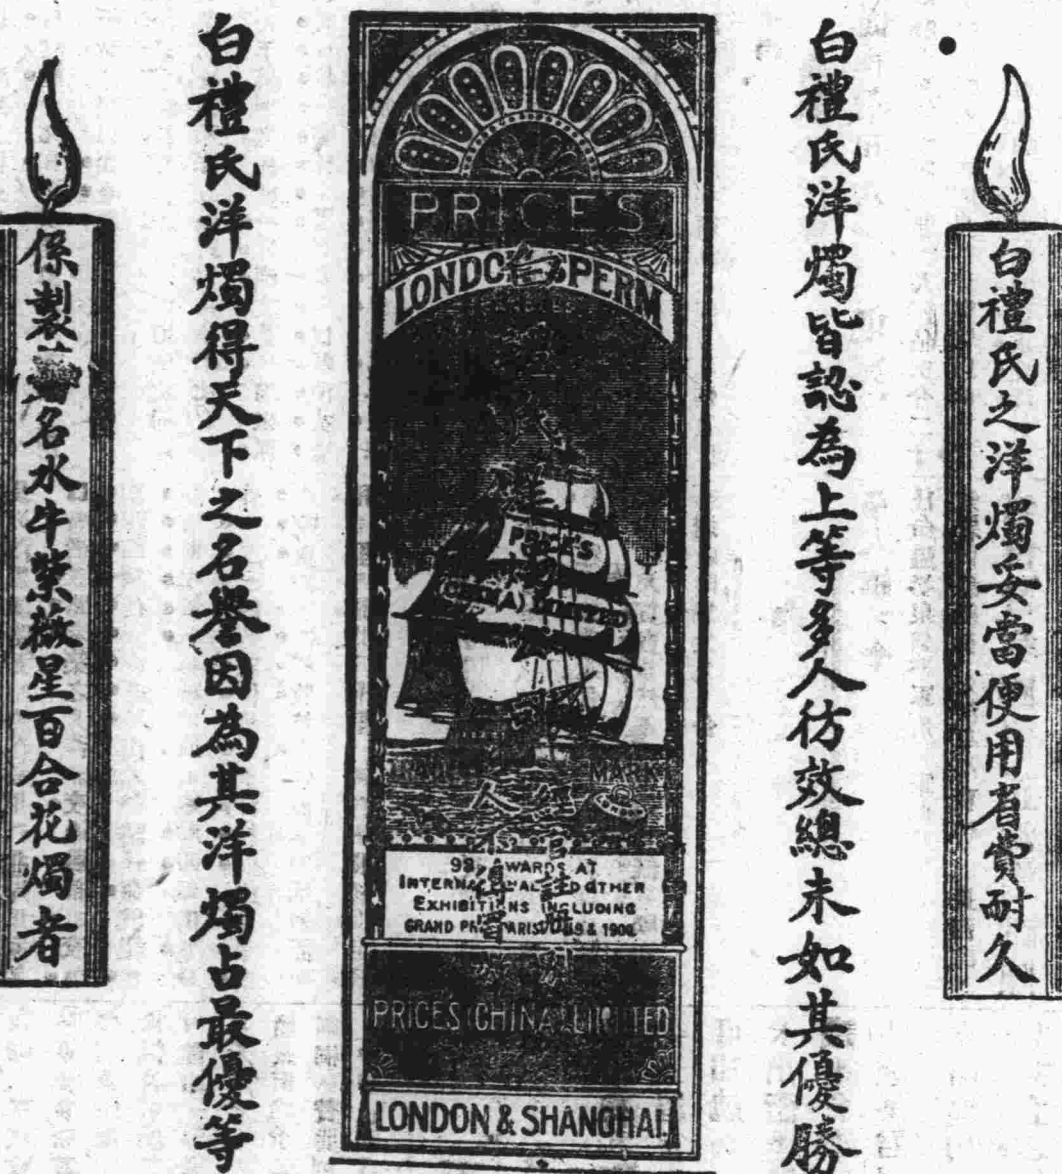 白禮氏之洋燭妥當便用省費耐久
白禮氏洋燭皆認為上等多人彷效總未如其優勝
PRICES
LONDON SPERM
PRICE'S
(CHINA) LIMITED
TRADE MARK
98 AWARDS AT
INTERNATIONAL AND OTHER
EXHIBITIONS INCLUDING
GRAND PRIX PARIS 1889 & 1900.
PRICES (CHINA) LIMITED
LONDON & SHANGHAI
白禮氏洋燭得天下之名譽因為其洋燭占最優等
係製名水牛紫薇星百合花燭者